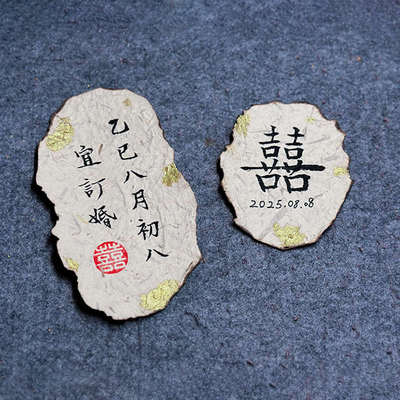 乙巳八月初八
宜訂婚
囍
囍
2025.08.08